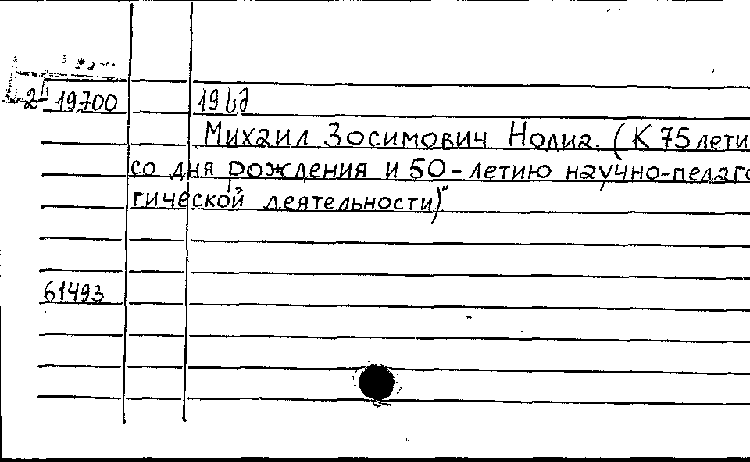 2 19700 19
Михаил Зосимович Нодиа. (К 75лети
со дня рождения и 50-летию научно-педаго
гической деятельности)"
61493